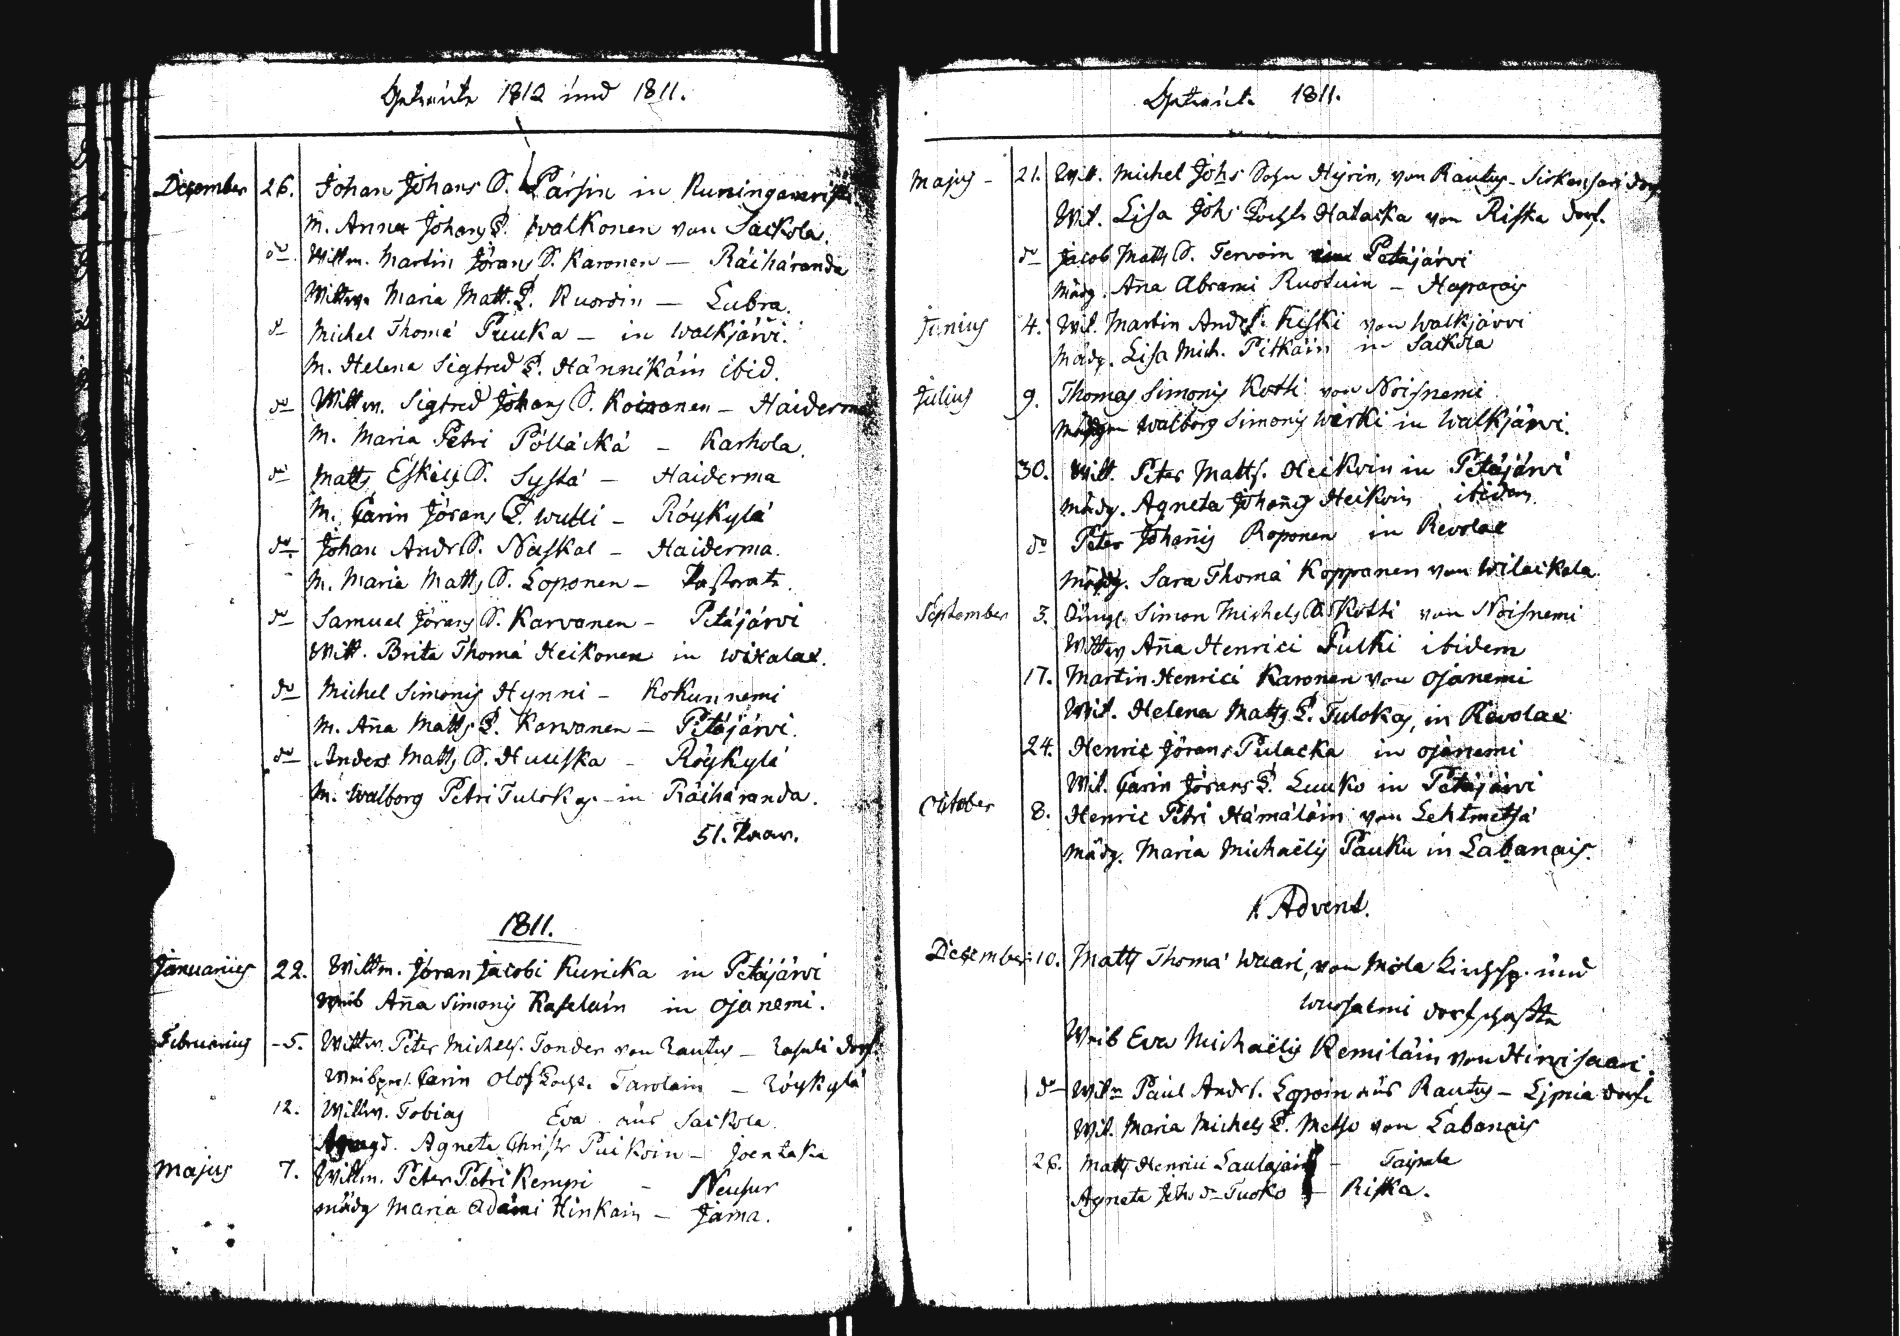 Getraute 1812 und 1811.
December 26. Johan Johans S. Pärsin in Kuningaanristi
M. Anna Johans D. Walkonen von Sackola.
do Wittw. Martin Jörans S. Karonen — Räihäranda
Wittwe Maria Matt. D. Ruotsin — Lubra.
do Michel Thomä Puuka — in Walkjärvi.
M. Helena Sigfred D. Hännikäin ibid.
do Wittw. Sigfred Johans S. Koironen — Haiderma
M. Maria Petri Pölläckä — Karhola.
do Matts Eskels S. Systä — Haiderma
M. Carin Jörans D. Wutli — Röykylä
do Johan Andr S. Naskal — Haiderma.
M. Maria Matts S. Loponen — Pastorats.
do Samuel Jörans S. Karvonen — Petäjärvi
Witt. Brita Thomä Heikonen in Wikalae.
do Michel Simonis Hynni — Kokunnemi
M. Aña Matts D. Karvonen — Petäjärvi.
do Anders Matts S. Huuska — Röykylä
M. Walborg Petri Tulokas — in Räihäranda.
51. Paar.
1811.
Januarius 22. Wittw. Jöran Jacobi Kuricka in Petäjärvi
Weib Aña Simonis Kaselain in Ojanemi.
Februarius - 5. Wittw. Peter Michels. Tonder von Rautus — Rasuli Dorf.
Carin Olofs Tarolain — Röykylä
12. Wittw. Tobias Eva aus Sackola.
Agneta Christr Puikoin — Joentaka
Majus 7. Wittw. Peter Petri Kemppi — Neusur
Mädg Maria Adami Hinkain — Jama.
Getraute 1811.
Majus - 21. Wit. Michel Johs Sohn Hyrin, von Rautus - Sirkensari Dorf
Wit. Lisa Joh: Hatacka von Riska Dorf.
do Jacob Matts S. Tervoin Petäjärvi
Mädg. Aña Abrami Ruotsuin — Haparais
Junius 4. Wit. Martin Andrs: Kiski von Walkjärvi
Mädg. Lisa Mich. Pitkäin in Sackola
Julius 9. Thomas Simonis Kotti von Noisnemi
Walborg Simonis Wärki in Walkjärvi.
30. Witt. Peter Matts. Heikoin in Petäjärvi
Mädg. Agneta Johañis Heikoin ibidem.
do Peter Johañis Roponen in Revolae
Mädg. Sara Thomä Kopponen von Wilackala
September 3. Simon Michels S. Kotti von Noisnemi
Wittw Aña Henrici Pulki ibidem
17. Martin Henrici Karonen von Ojanemi
Wit. Helena Matts D. Tulokas, in Revolae
24. Henric Jörans Pulacka in Ojanemi
Wit. Carin Jörans D. Luuko in Petäjärvi
October 8. Henric Petri Hämäläin von Lehtmetsä
Mädg. Maria Michaëlis Pauku in Labanais.
1 Advent.
December: 10. Matts Thomä Waari, von Mola und
Wuosalmi Dorfschaft
Weib Eva Michaëlis Remiläin von Hirvisaari.
do Witw Paul Andrs. Loponin aus Rautus — Lipnia Dorf.
Wit. Maria Michels D. Metso von Labanais
26. Matts Henrici Laulajain — Taipale
Agneta Joh. Tuoko — Riska.